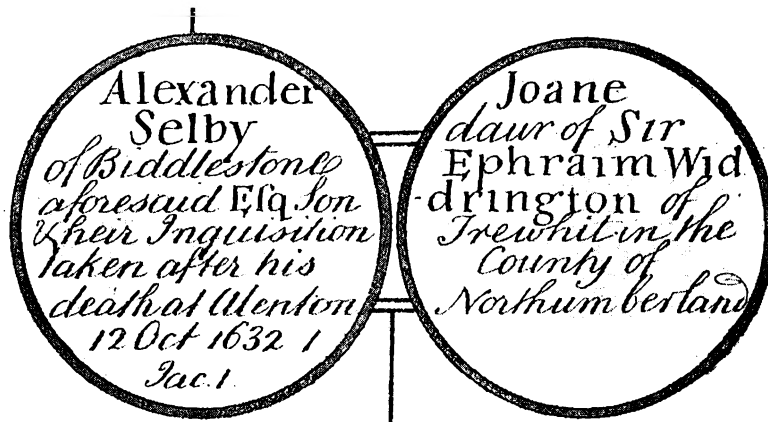 Alexander
Selby
of Biddlestone
aforesaid Esq Son
& heir Inquisition
taken after his
death at Alenton
12 Oct 1632 1
Jac. 1.
Joane
daur of Sir
Ephraim Wid
drington of
Trewhit in the
County of
Northumberland